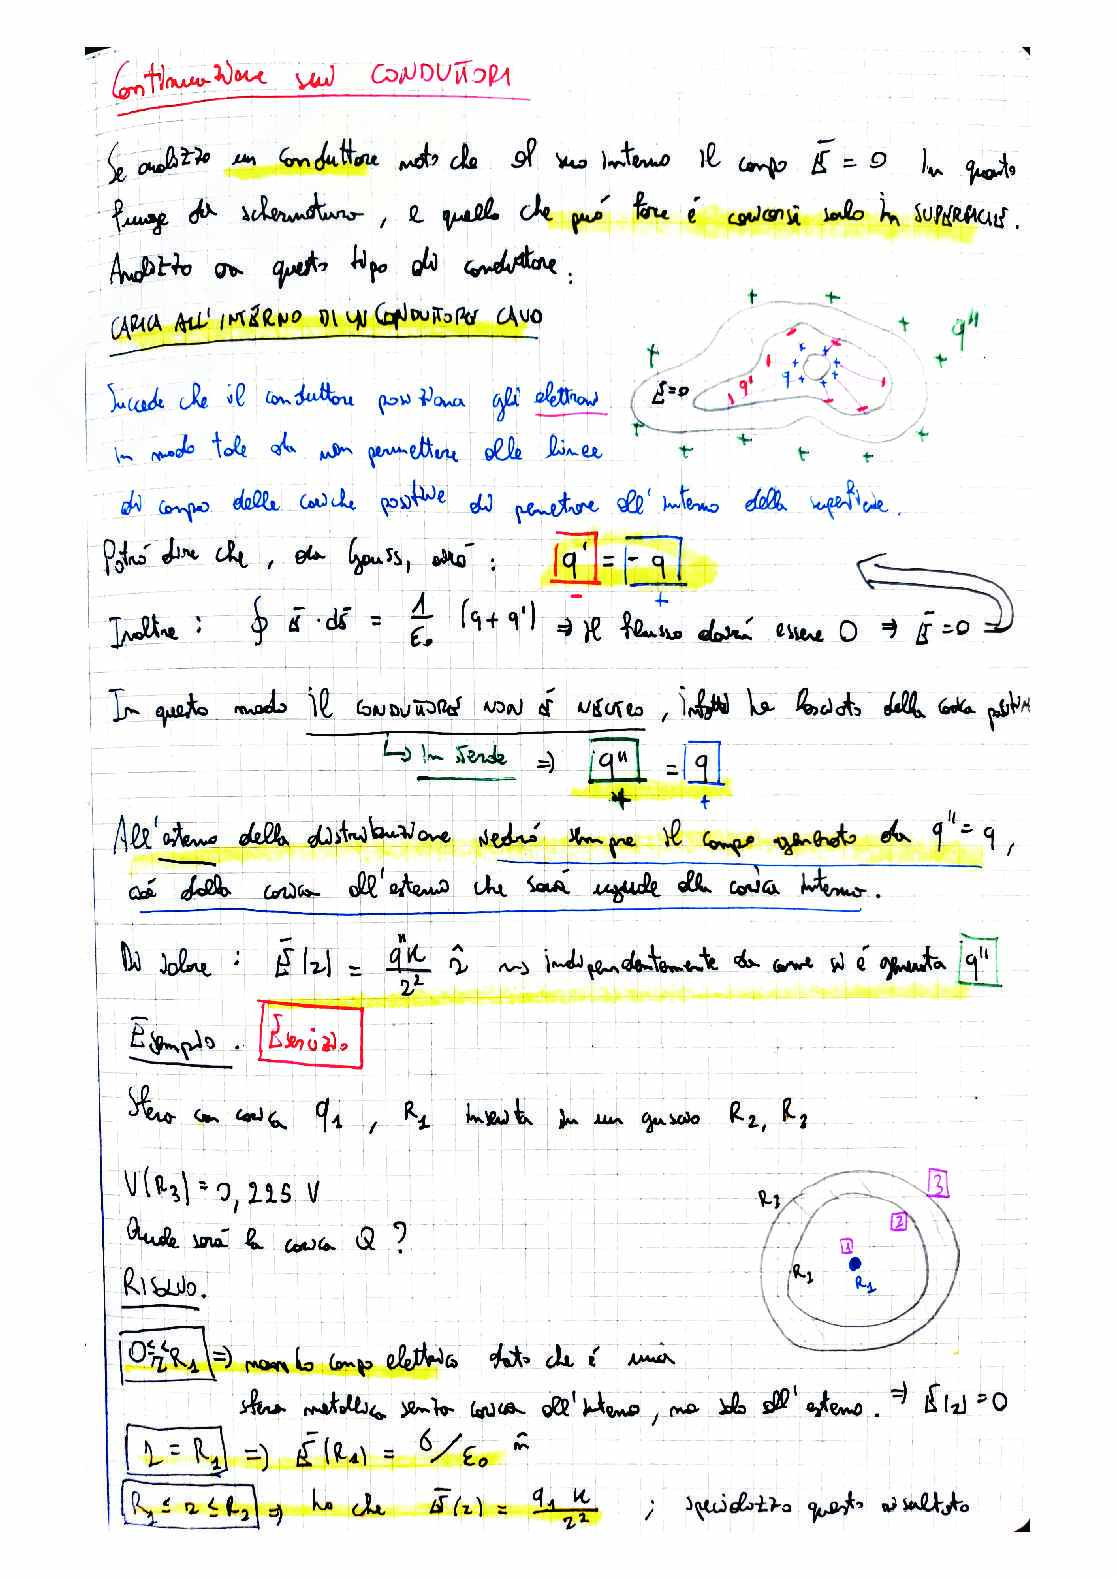 Continuazione sui CONDUTTORI
Se analizzo un conduttore noto che al suo interno il campo E̅ = 0 In quanto
funge da schermatura, e quello che può fare è caricarsi solo in SUPERFICIE.
Analizzo ora questo tipo di conduttore:
CARICA ALL'INTERNO DI UN CONDUTTORE CAVO
q''
E̅=0
q'
q
Succede che il conduttore posiziona gli elettroni
in modo tale da non permettere alle linee
di campo delle cariche positive di penetrare all'interno della superficie.
Potrò dire che, da Gauss, avrò: q' = - q
Inoltre: ∮ E̅ · ds̅ = 1/ε₀ (q + q') ⇒ il flusso dovrà essere 0 ⇒ E̅ = 0
In questo modo il CONDUTTORE NON È NEUTRO, infatti ha lasciato della carica positiva
↳ In sfera ⇒ q'' = q
All'esterno della distribuzione vedrò sempre il campo generato da q'' = q,
cioè dalla carica all'esterno che sarà uguale alla carica interna.
Di valore: E̅(r) = q''k/r² r̂ ⇝ indipendentemente da come si è generata q''
Esempio. Esercizio
Sfera con carica q₁, R₁ inserita in un guscio R₂, R₃
V(R₃) = 0,225 V
Quale sarà la carica Q?
RISOLVO.
R₃
3
2
1
R₂
R₁
0 ≤ r ≤ R₁ ⇒ non ho campo elettrico dato che è una
sfera metallica senza carica all'interno, ma solo all'esterno. ⇒ E̅(r) = 0
r = R₁ ⇒ E̅(R₁) = σ/ε₀ n̂
R₁ ≤ r ≤ R₂ ⇒ ho che E̅(r) = q₁ k/r² ; specializzo questo risultato